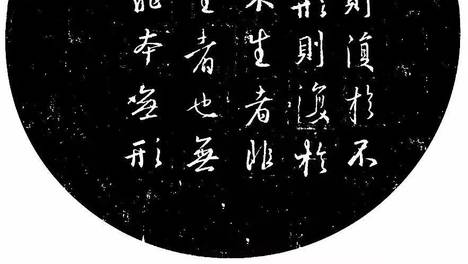 則復於不
形則復於
不生者非
生者也無
非本無形